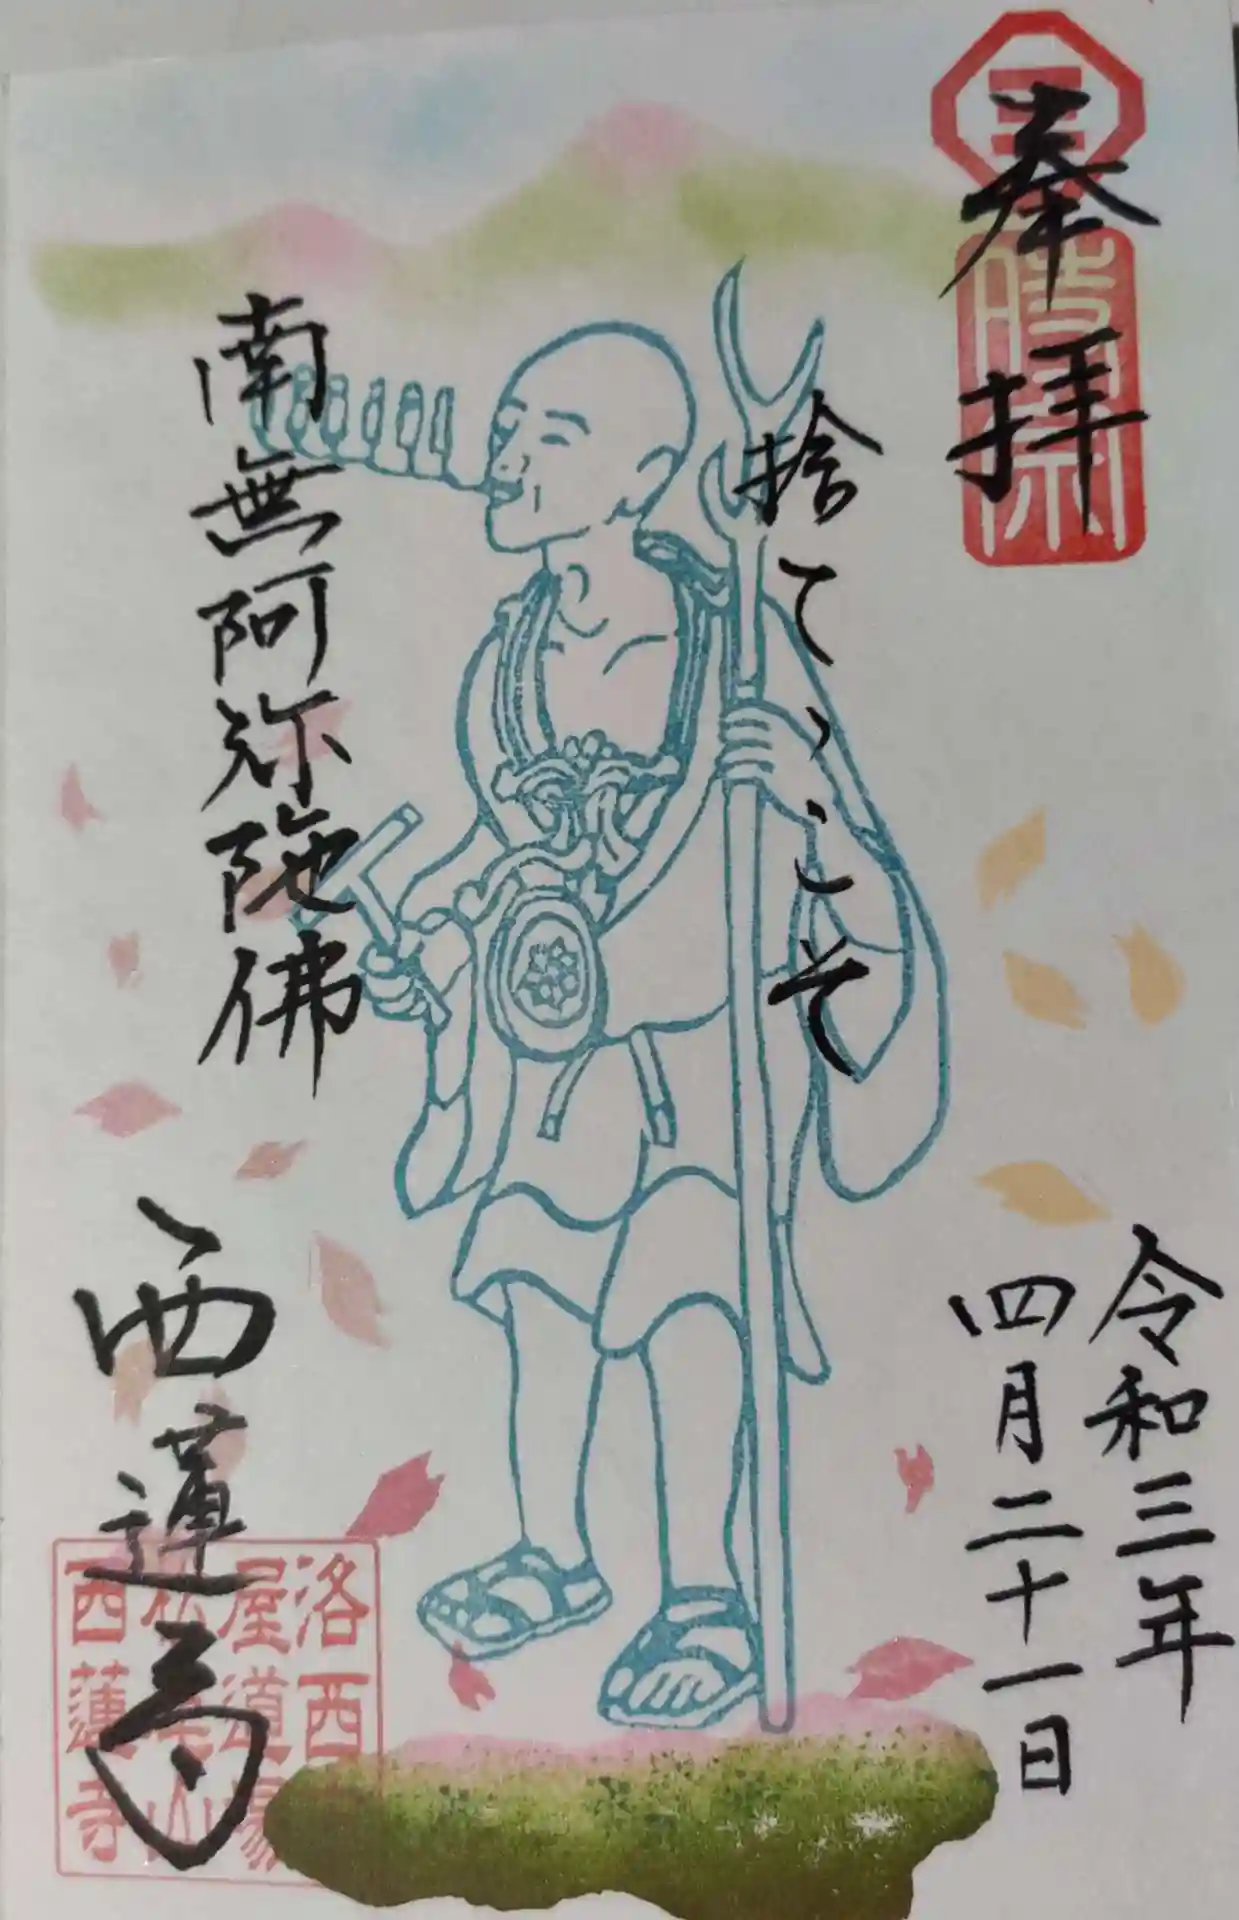 奉拝
令和三年
四月二十一日
捨てゝこそ
南無阿弥陀佛
西蓮寺
洛西
屋道場
西蓮寺